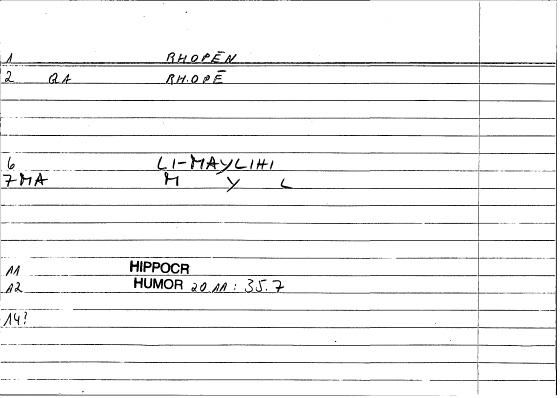 1 RHOPĒN
2 QA RH.OPĒ
6 LI-MAYLIHI
7 MA M Y L
11 HIPPOCR
12 HUMOR 20.11: 35.7
14?